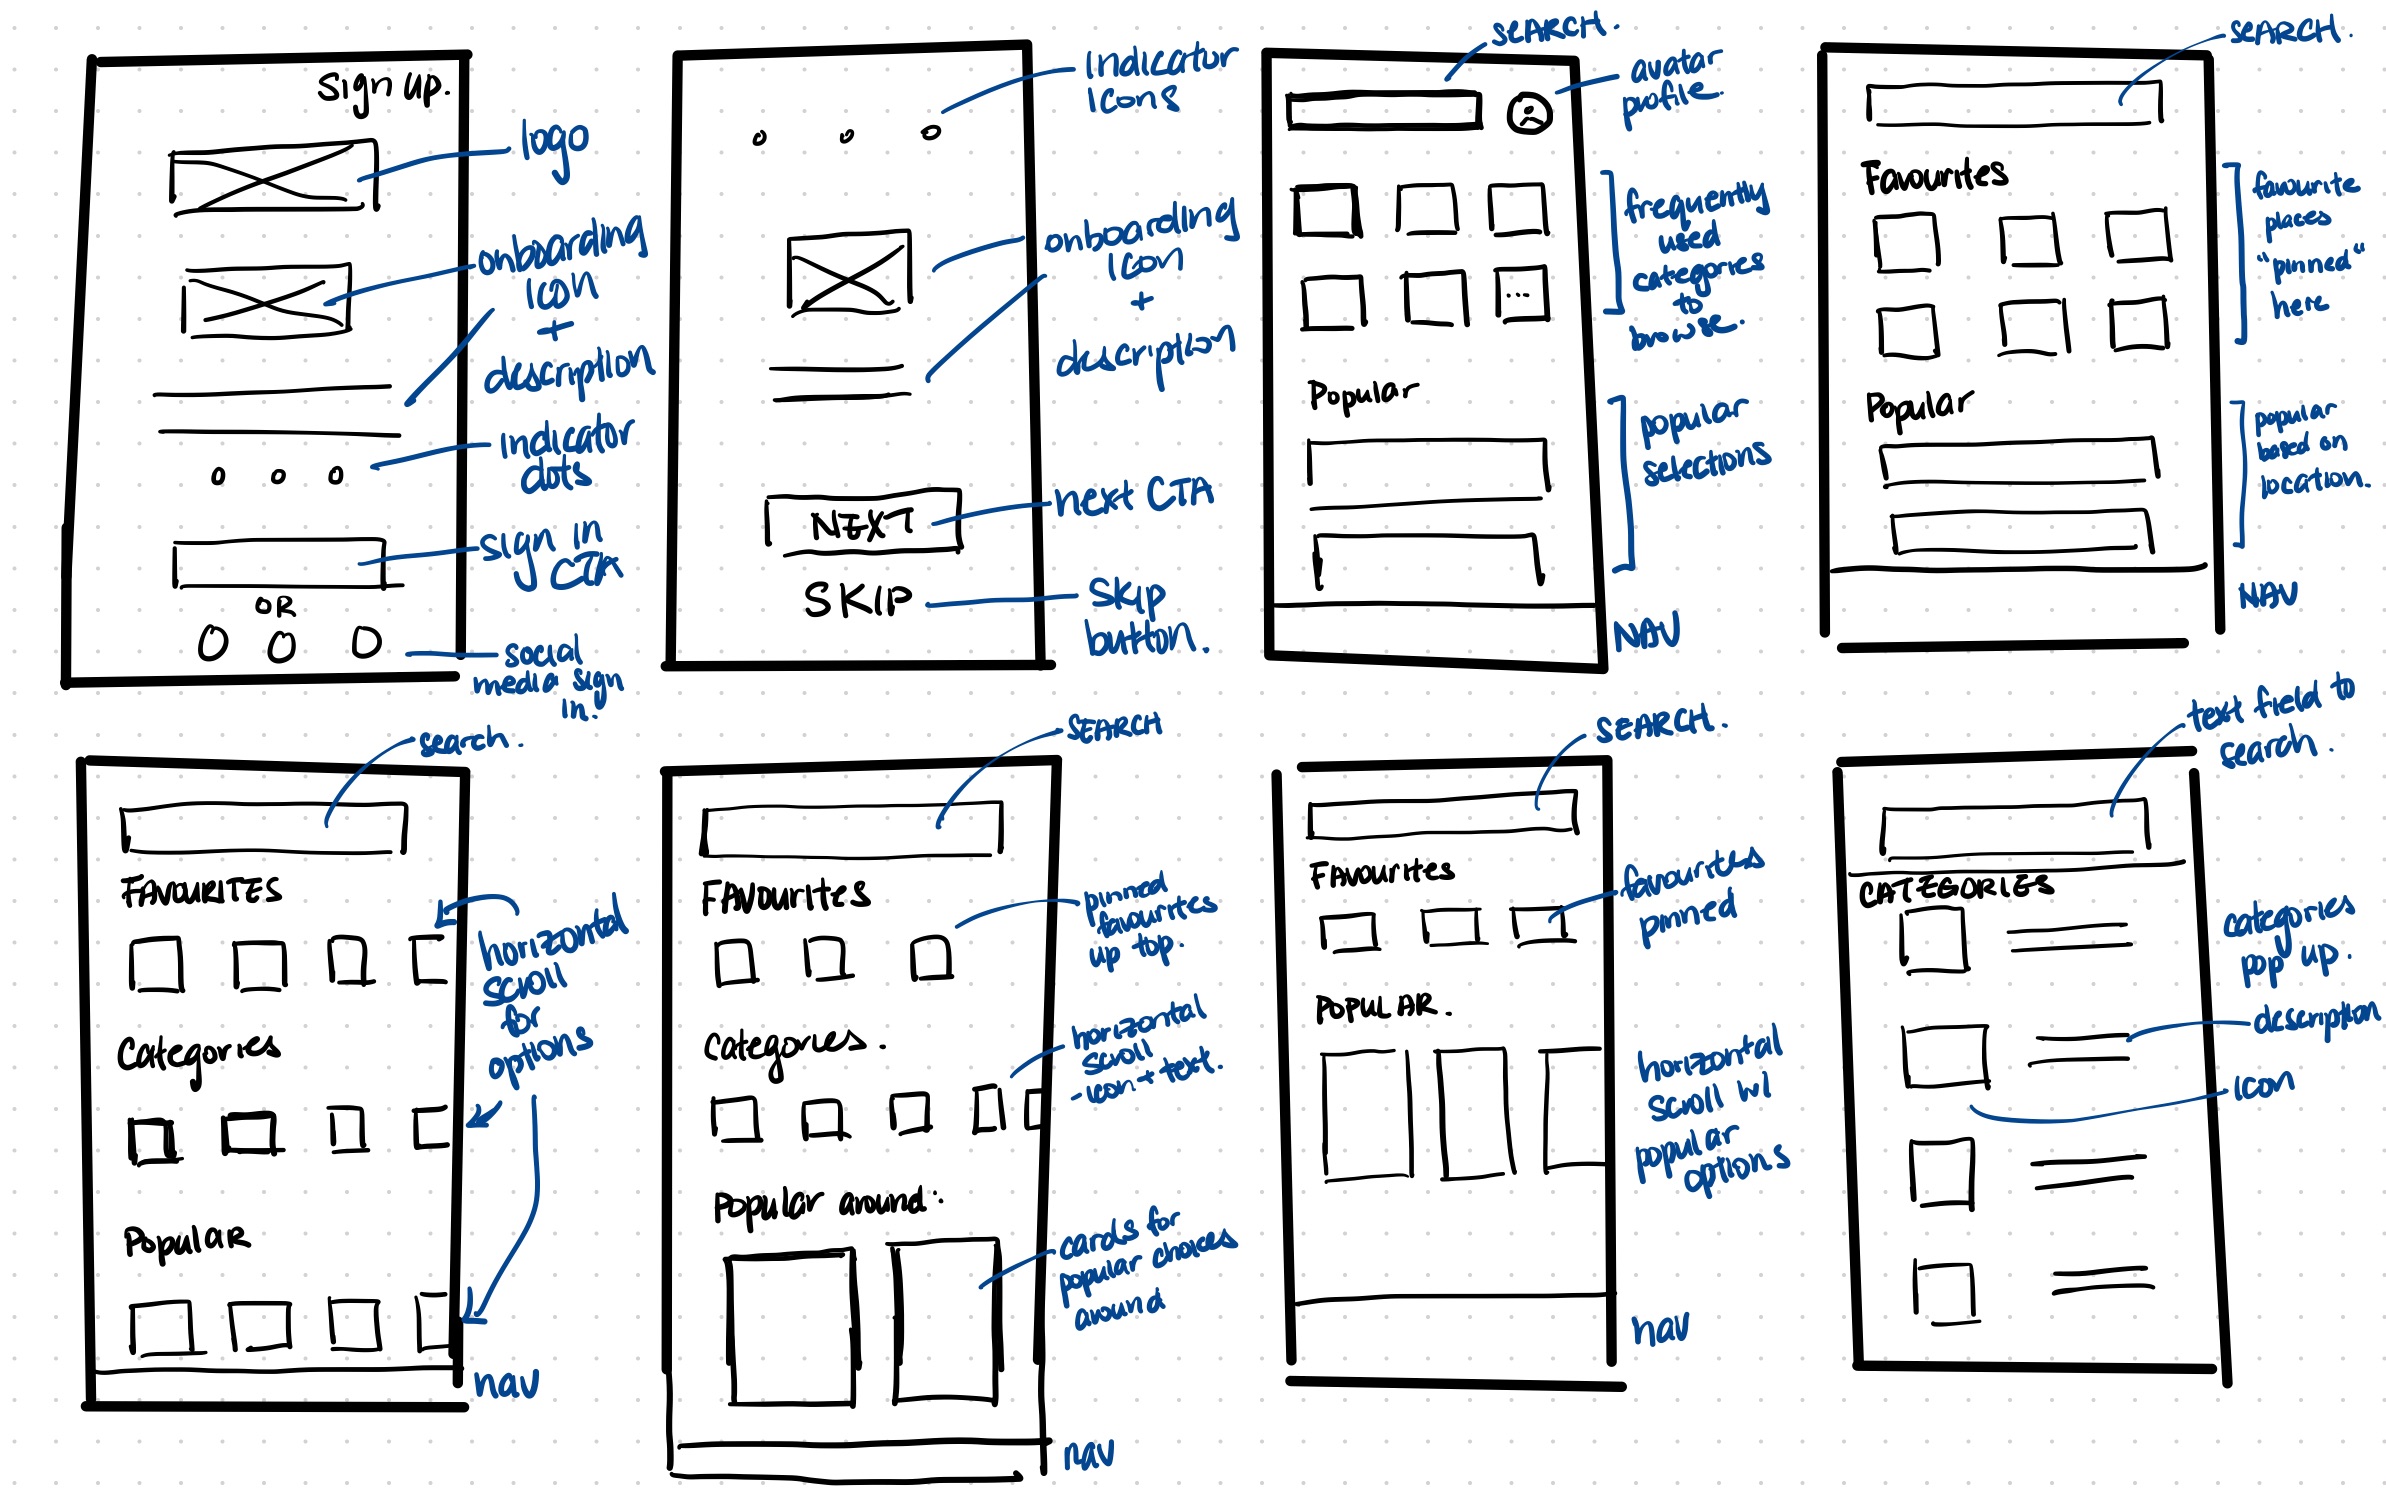 Sign up.
logo
onboarding
icon
+
description
indicator
dots
sign in
CTA
OR
social
media sign
in.
indicator
icons
onboarding
icon
+
description
NEXT
next CTA
SKIP
Skip
button.
SEARCH.
avatar
profile.
frequently
used
categories
to
browse.
Popular
popular
selections
NAV
SEARCH.
Favourites
favourite
places
"pinned"
here
Popular
popular
based on
location.
NAV
search.
FAVOURITES
horizontal
scroll
for
options
Categories
Popular
nav
SEARCH
Favourites
pinned
favourites
up top.
Categories.
horizontal
scroll
- icon + text.
Popular around.
cards for
popular choices
around
nav
SEARCH.
Favourites
favourites
pinned
POPULAR.
horizontal
scroll w/
popular
options
nav
text field to
search.
CATEGORIES
categories
pop up.
description
icon